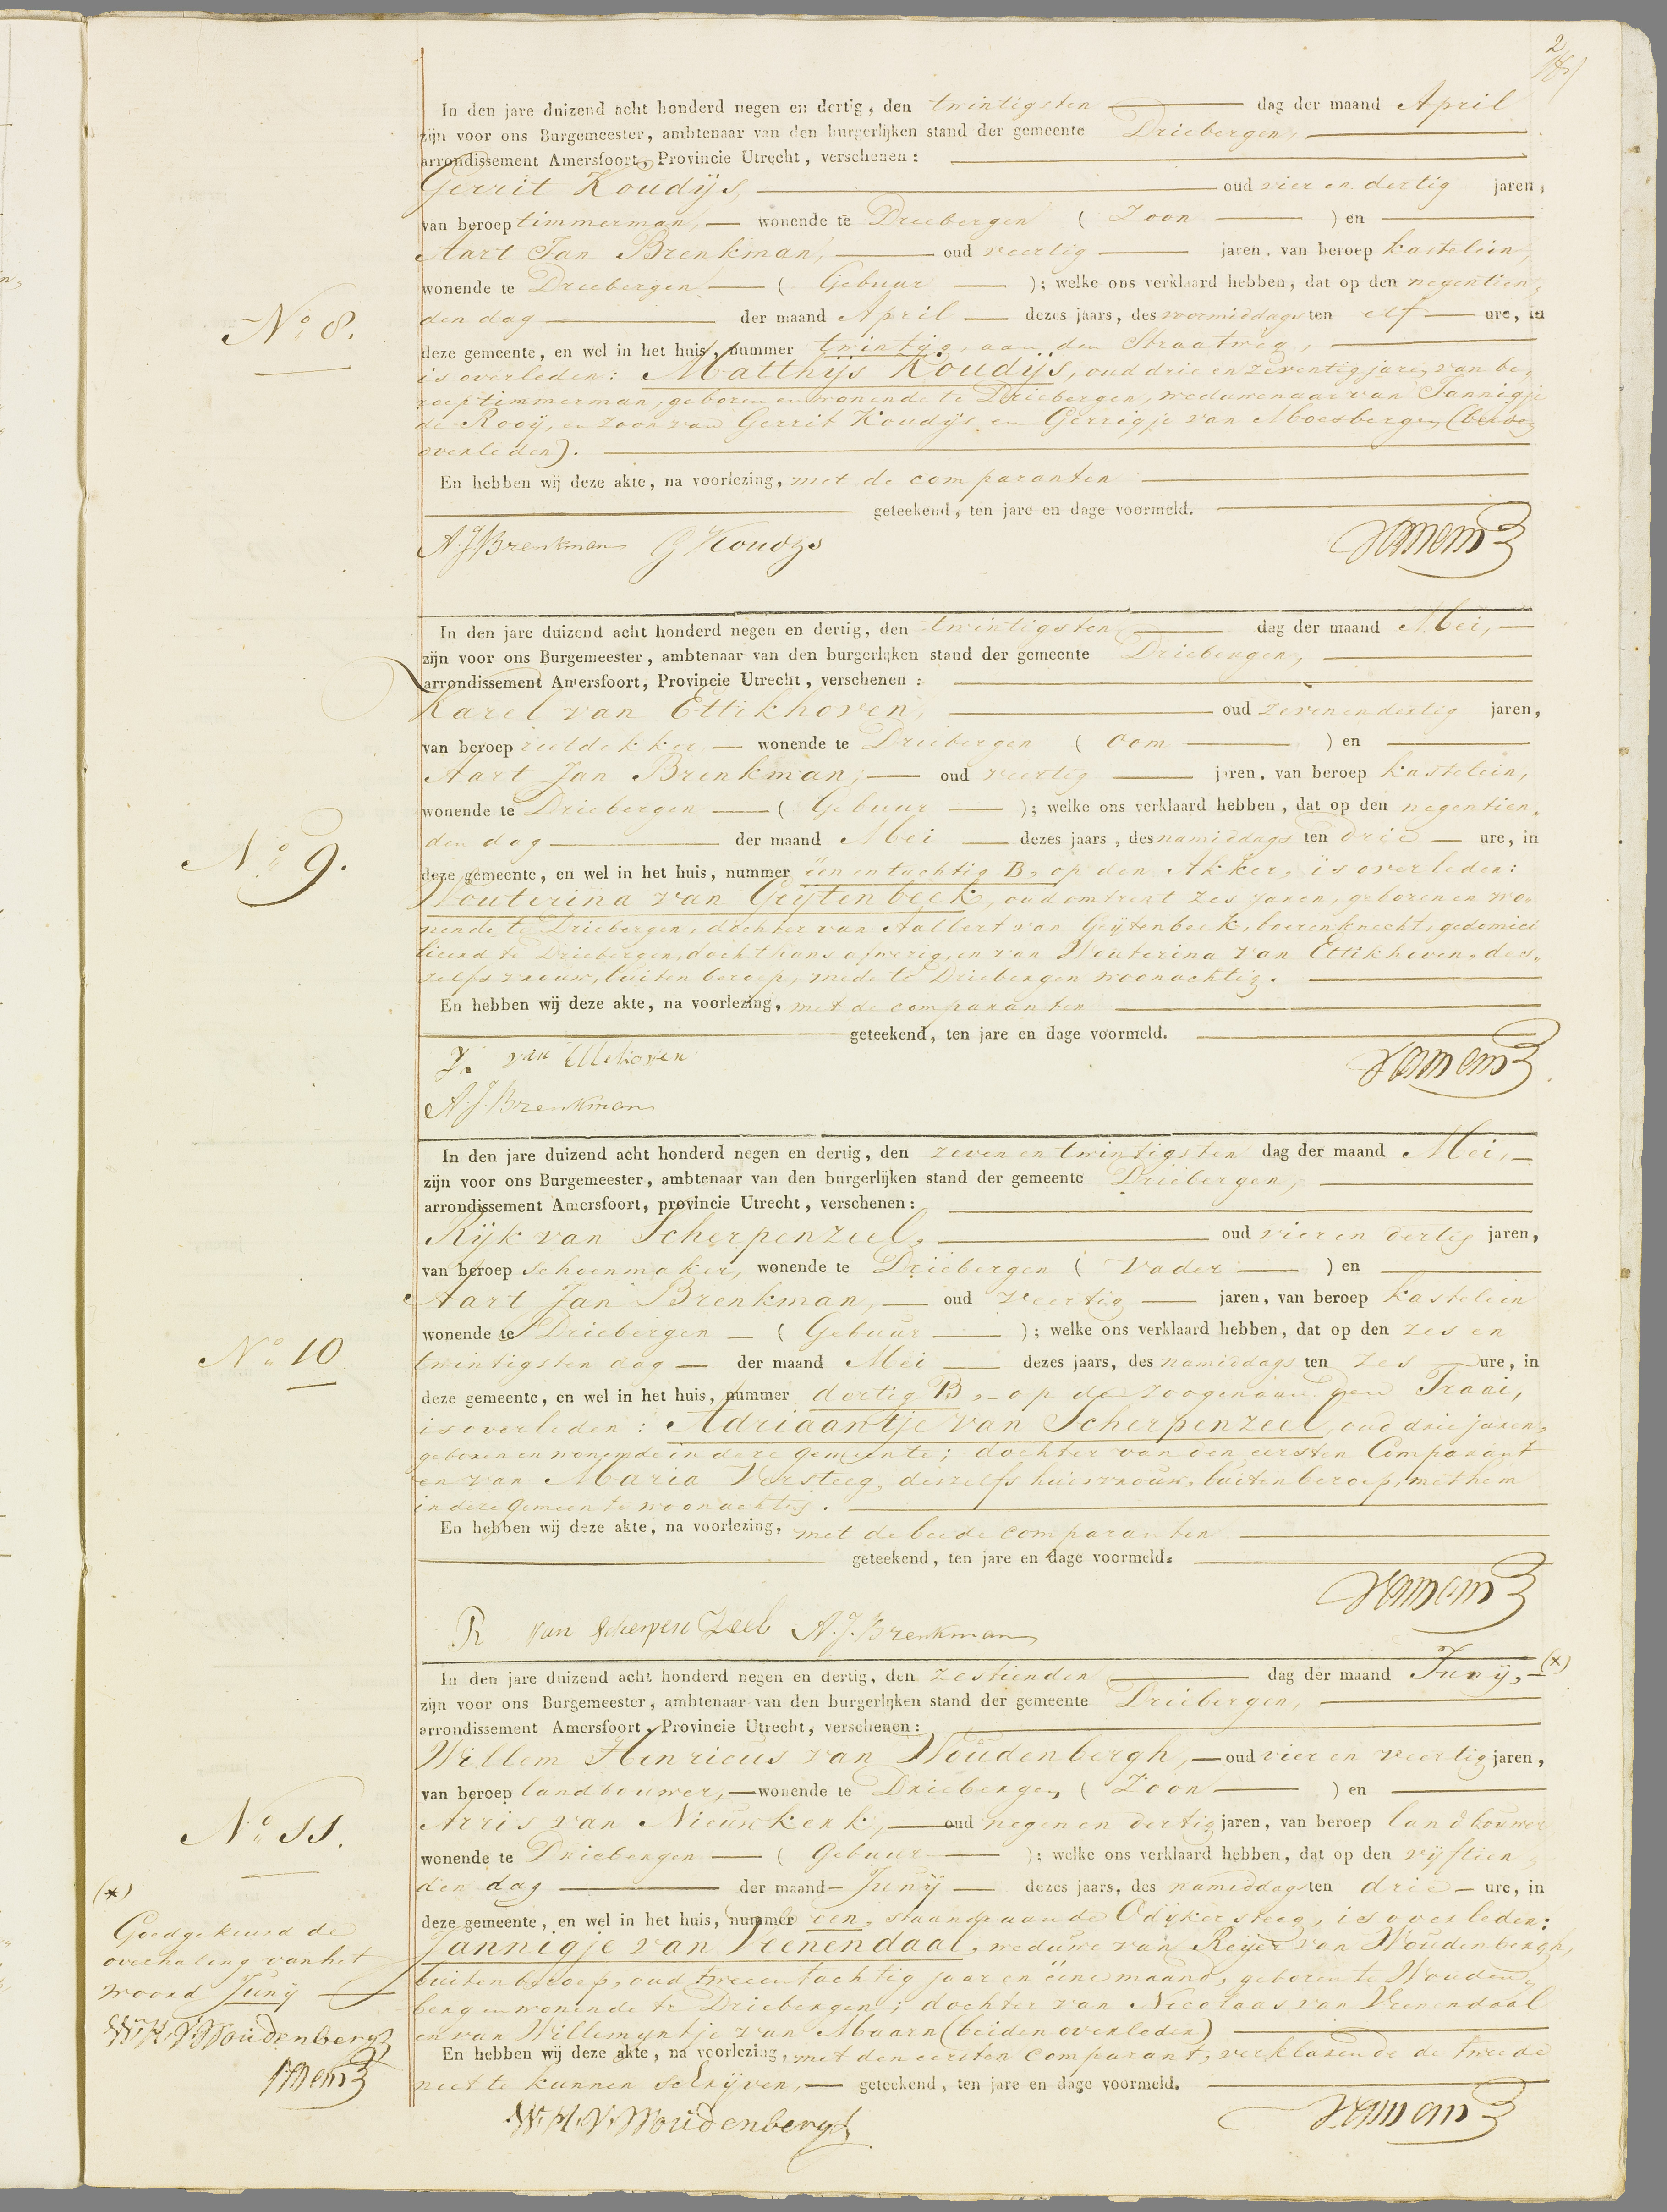 2
In den jare duizend acht honderd negen en dertig, den twintigsten dag der maand April
zijn voor ons Burgemeester, ambtenaar van den burgerlijken stand der gemeente Driebergen,
arrondissement Amersfoort, Provincie Utrecht, verschenen:
Gerrit Koudijs, oud vier en dertig jaren,
van beroep timmerman, wonende te Driebergen (Zoon) en
Aart Jan Brenkman, oud veertig jaren, van beroep kastelein,
wonende te Driebergen (Gebuur); welke ons verklaard hebben, dat op den negentien,
No 8.
den dag der maand April dezes jaars, des voormiddags ten elf ure, in
deze gemeente, en wel in het huis, nummer twintig, aan den Straatweg,
is overleden: Matthijs Koudijs, oud drie en zeventig jaren, van be,
roep timmerman, geboren en wonende te Driebergen, weduwenaar van Jannigje
de Rooij, en zoon van Gerrit Koudijs en Gerrigje van Moesbergen (beiden
overleden).
En hebben wij deze akte, na voorlezing, met de comparanten
geteekend, ten jare en dage voormeld.
A. J. Brenkman G Koudys
In den jare duizend acht honderd negen en dertig, den twintigsten dag der maand Mei,
zijn voor ons Burgemeester, ambtenaar van den burgerlijken stand der gemeente Driebergen,
arrondissement Amersfoort, Provincie Utrecht, verschenen:
Karel van Ettikhoven, oud zevenendertig jaren,
van beroep rietdekker wonende te Driebergen (Oom) en
Aart Jan Brenkman, oud veertig jaren, van beroep kastelein,
wonende te Driebergen (Gebuur); welke ons verklaard hebben, dat op den negentien,
No 9.
den dag der maand Mei dezes jaars, des namiddags ten drie ure, in
deze gemeente, en wel in het huis, nummer één en tachtig B, op den Akker, is overleden:
Wouterina van Geijtenbeek, oud omtrent zes jaren, geboren en wo,
nende te Driebergen, dochter van Aalbert van Geijtenbeek, boerenknecht, gedomici
lieerd te Driebergen, doch thans afwezig, en van Wouterina van Ettikhoven, des,
zelfs vrouw, buiten beroep, mede te Driebergen woonachtig.
En hebben wij deze akte, na voorlezing, met de comparanten
geteekend, ten jare en dage voormeld.
A. J. Brenkman
In den jare duizend acht honderd negen en dertig, den zeven en twintigsten dag der maand Mei,
zijn voor ons Burgemeester, ambtenaar van den burgerlijken stand der gemeente Driebergen,
arrondissement Amersfoort, provincie Utrecht, verschenen:
Rijk van Scherpenzeel, oud vier en dertig jaren,
van beroep schoenmaker, wonende te Driebergen (Vader) en
Aart Jan Brenkman, oud veertig jaren, van beroep kastelein
wonende te Driebergen (Gebuur); welke ons verklaard hebben, dat op den zes en
No 10
twintigsten dag der maand Mei dezes jaars, des namiddags ten zes ure, in
deze gemeente, en wel in het huis, nummer dertig B, op de zoogenaamden Traai,
is overleden: Adriaantje van Scherpenzeel, oud drie jaren,
geboren en wonende in deze gemeente; dochter van den eersten Comparant
en van Maria Versteeg, deszelfs huisvrouw, buiten beroep, met hem
in deze gemeente woonachtig.
En hebben wij deze akte, na voorlezing, met de beide comparanten
geteekend, ten jare en dage voormeld.
R van Scherpenzeel A. J. Brenkman
In den jare duizend acht honderd negen en dertig, den zestienden dag der maand Junij, (*)
zijn voor ons Burgemeester, ambtenaar van den burgerlijken stand der gemeente Driebergen,
arrondissement Amersfoort, Provincie Utrecht, verschenen:
Willem Henricus van Woudenbergh, oud vier en veertig jaren,
van beroep landbouwer, wonende te Driebergen (Zoon) en
Arris van Nieuwkerk, oud negen en dertig jaren, van beroep landbouwer
No 11.
wonende te Driebergen (Gebuur); welke ons verklaard hebben, dat op den vijftien,
den dag der maand Junij dezes jaars, des namiddags ten drie ure, in
deze gemeente, en wel in het huis, nummer een, staande aan de Odijker steeg, is overleden:
Jannigje van Veenendaal, weduwe van Reijer van Woudenbergh,
buiten beroep, oud twee en tachtig jaar en eene maand, geboren te Wouden,
berg en wonende te Driebergen; dochter van Nicolaas van Veenendaal
en van Willemijntje van Maarn (beiden overleden)
En hebben wij deze akte, na voorlezing, met den eersten comparant, verklarende de tweede
niet te kunnen schrijven, geteekend, ten jare en dage voormeld.
W. H. V. Woudenbergh
(*)
Goedgekeurd de
overhaling van het
woord Junij
W. H. V. Woudenbergh